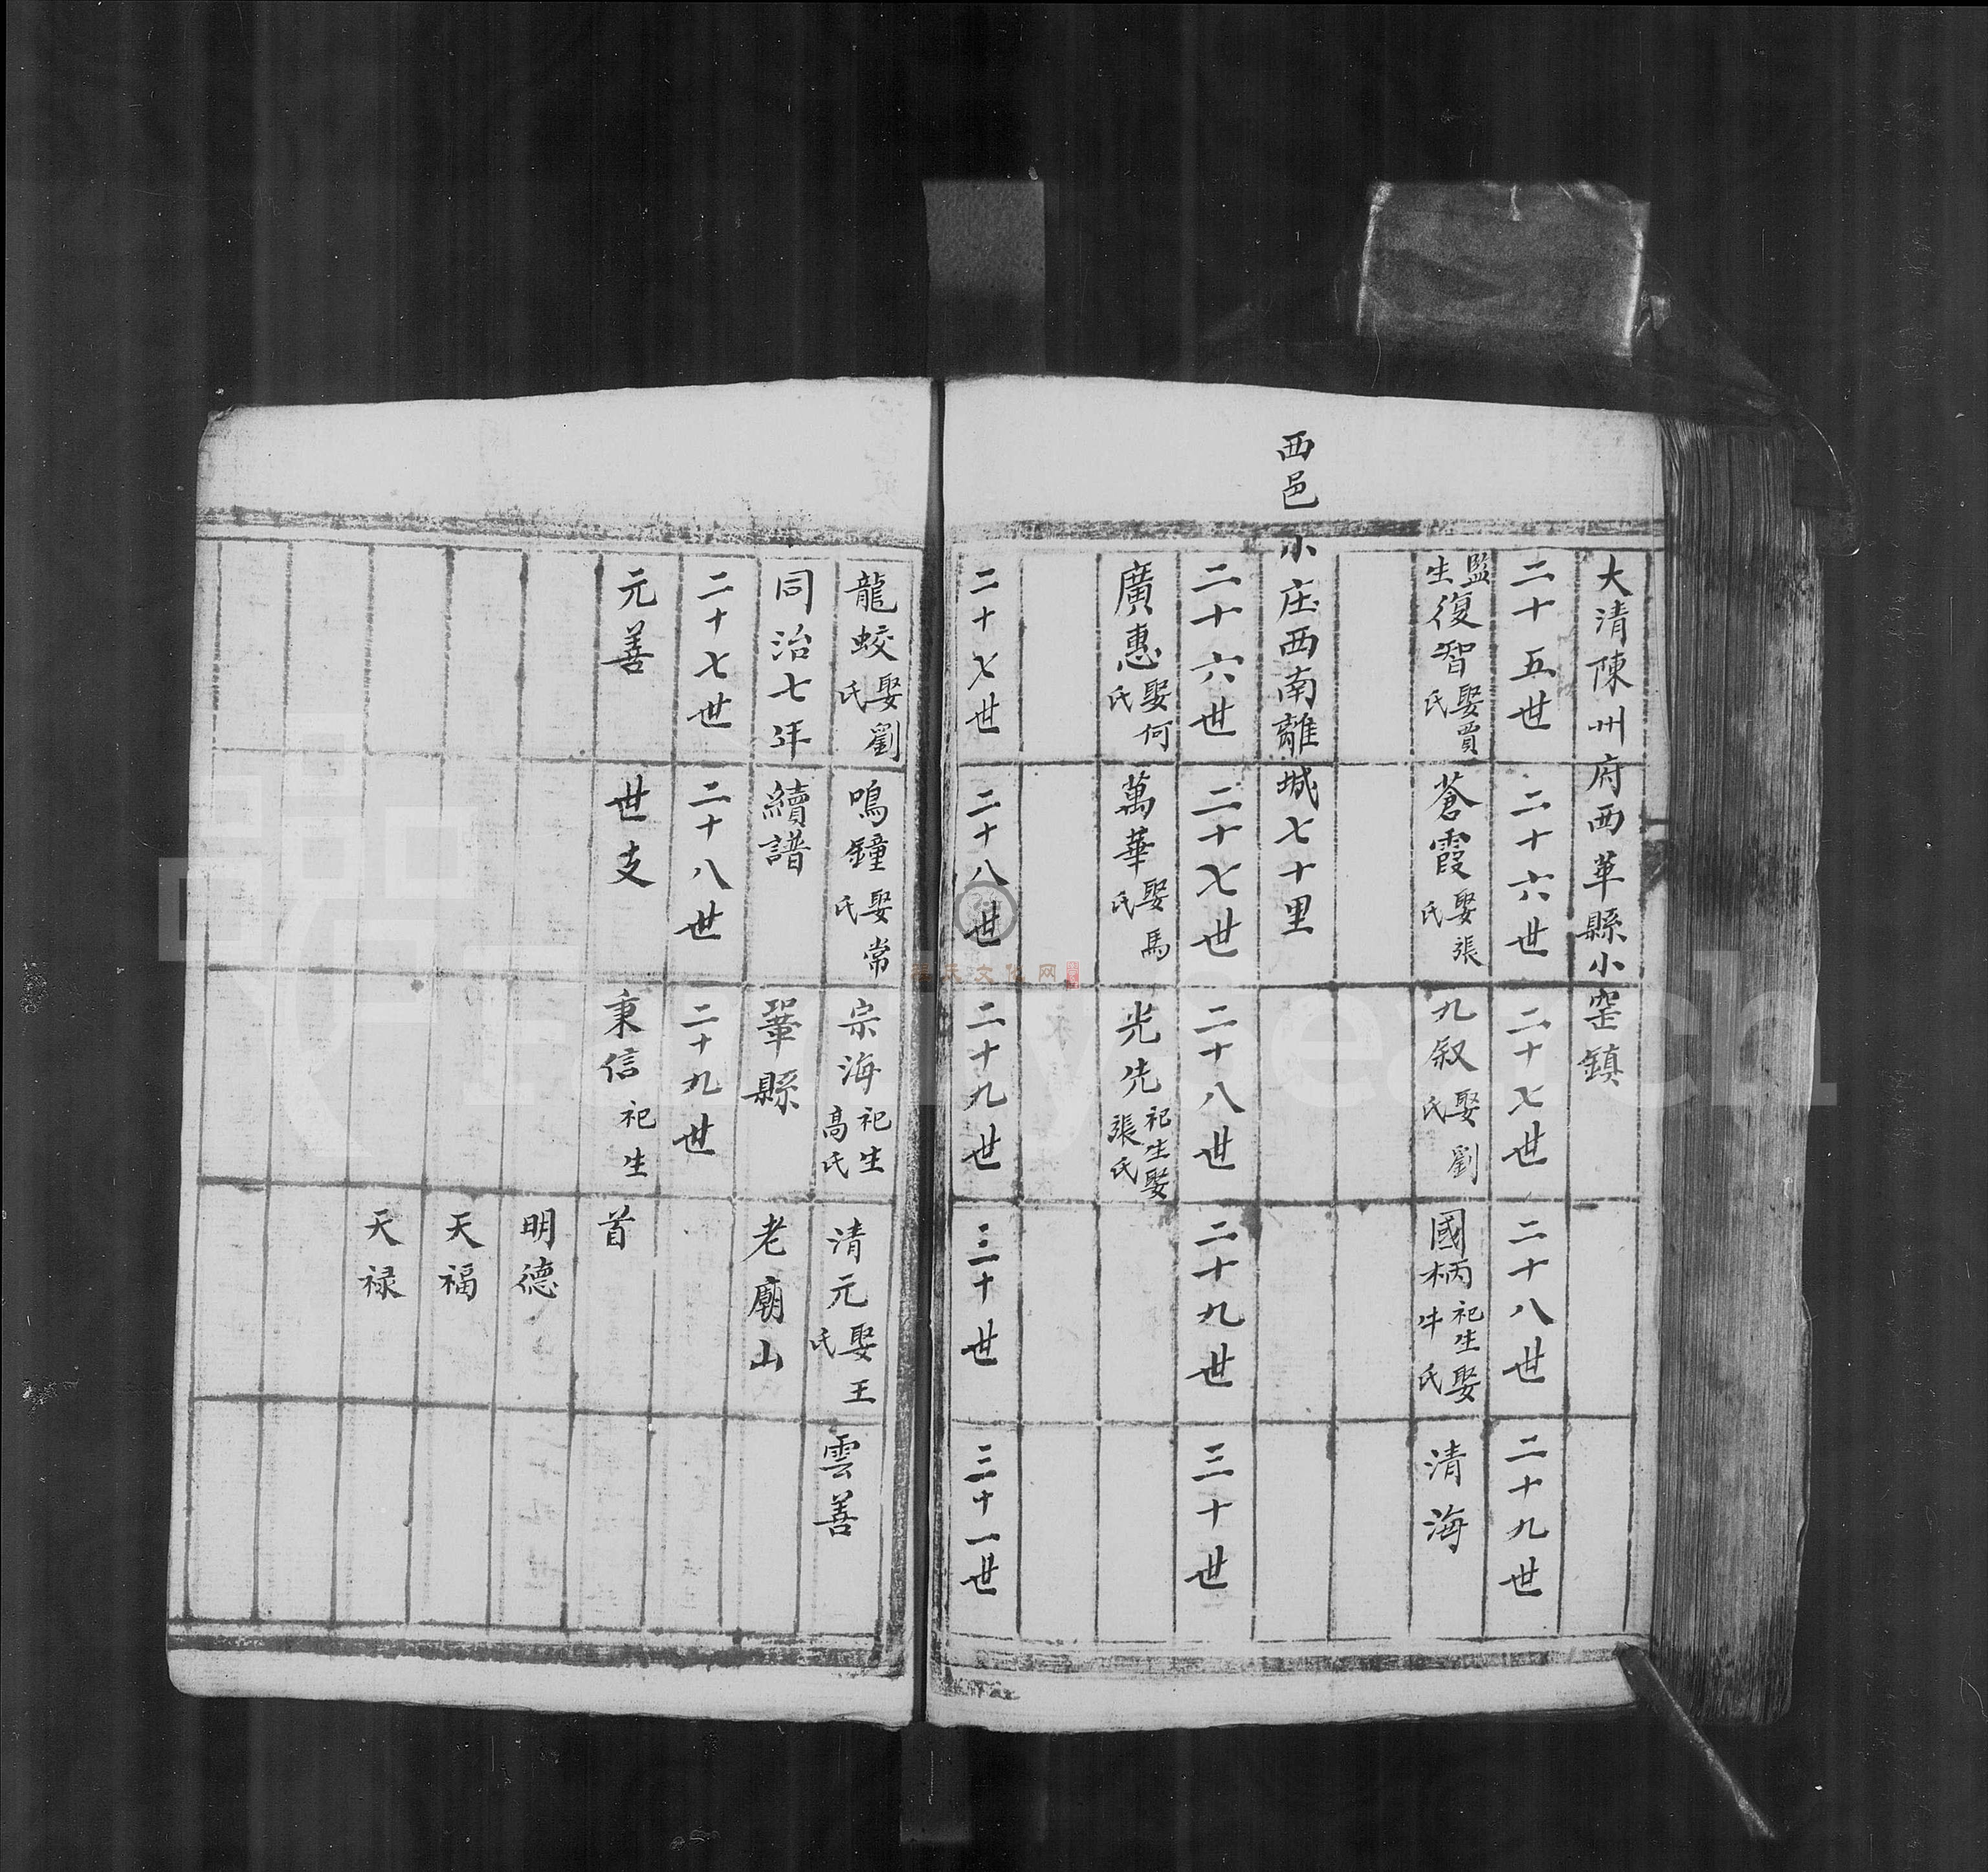 大清陳州府西華縣小窑鎮
二十五世 二十六世 二十七世 二十八世 二十九世
監生復智娶賈氏 蒼霞娶張氏 九叙娶劉氏 國柄祀生娶牛氏 清海
西邑小庄西南離城七十里
二十六世 二十七世 二十八世 二十九世 三十世
廣惠娶何氏 萬華娶馬氏 光先祀生娶張氏
二十七世 二十八世 二十九世 三十世 三十一世
龍蛟娶劉氏 鳴鐘娶常氏 宗海祀生高氏 清元娶王氏 雲善
同治七年續譜 鞏縣老廟山
二十七世 二十八世 二十九世
元善 世支 秉信祀生 首
明德
天福
天禄